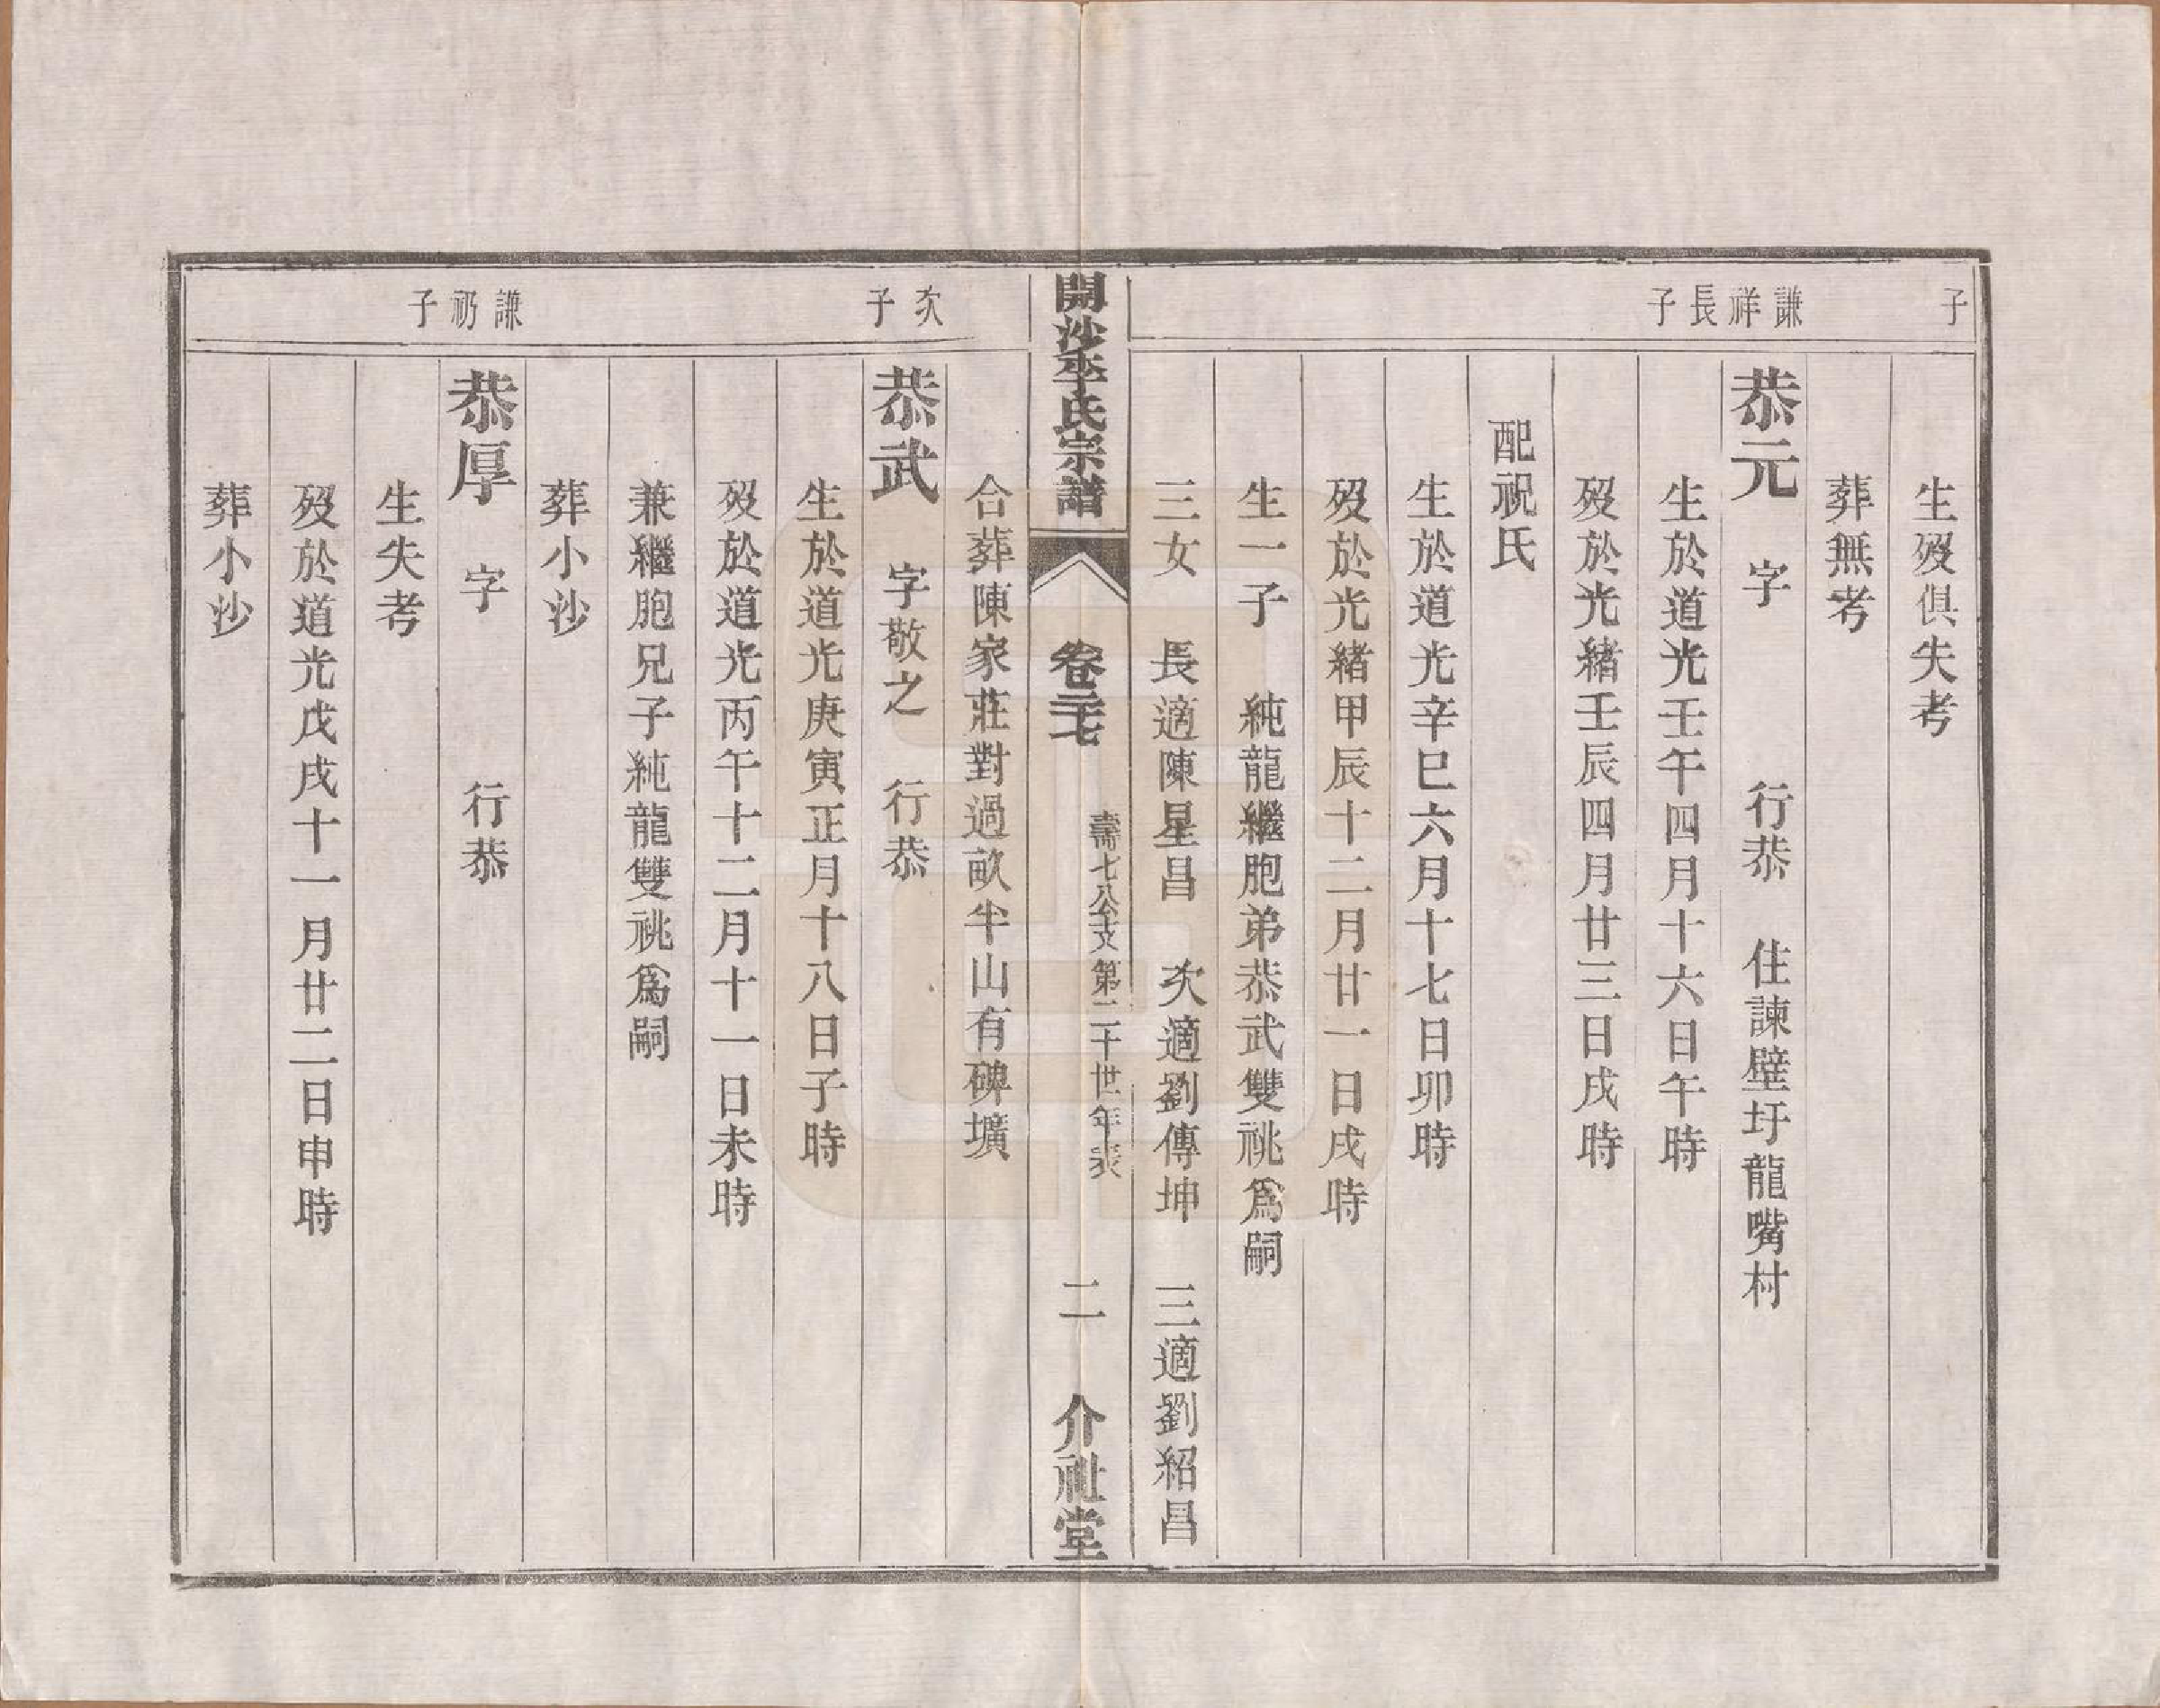 子
生歿俱失考
葬無考
謙祥長子
恭元　字　　　行恭　住諫壁圩龍嘴村
生於道光壬午四月十六日午時
歿於光緒壬辰四月廿三日戌時
配祝氏
生於道光辛巳六月十七日卯時
歿於光緒甲辰十二月廿一日戌時
生一子　純龍繼胞弟恭武雙祧爲嗣
三女　長適陳星昌　次適劉傳坤　三適劉紹昌
開沙李氏宗譜
卷二十七
壽七八公支第二十世年表
二
介祉堂
合葬陳家莊對過畝半山有碑壙
次子
恭武　字敬之　行恭
生於道光庚寅正月十八日子時
歿於道光丙午十二月十一日未時
兼繼胞兄子純龍雙祧爲嗣
葬小沙
謙礽子
恭厚　字　　　行恭
生失考
歿於道光戊戌十一月廿二日申時
葬小沙